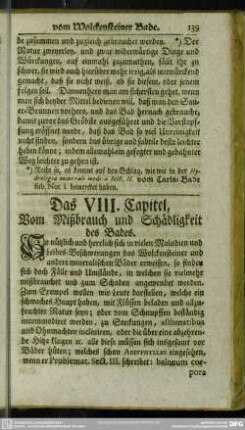 vom Wolckensteiner Bade. 139
de zusammen und zugleich gebrauchet werden. *) Der
Natur zweyerley, und zwar widerwärtige Dinge und
Würckungen, auf einmahl zuzumuthen, fällt ihr zu
schwer, sie wird auch hierüber mehr irrig, als
daß sie nicht weiß, ob sie diesen, oder jenem
folgen soll. Dannenhero man am sichersten gehet, wenn
man sich beyder Mittel bedienen will, daß man den Sau-
er-Brunnen vorhero, und das Bad hernach gebrauche,
damit zuvor das Gröbste ausgeführet und die Verstopf-
fung eröffnet werde, daß das Bad so viel Unreinigkeit
nicht finden könne; sondern das übrige und subtile desto leichter
heben könne; indem allemahl ein gefegter und gebahnter
Weg leichter zu gehen ist.
*) Recht so, es kommt auf den Schlag, wie wir in der Hy-
drologia minerali medica Sect. II. vom Carls-Bade
sub. No. 1. bemercket haben.
Das VIII. Capitel,
Vom Mißbrauch und Schädligkeit
des Bades.
So nützlich und herrlich sich in vielen Maladien und
Leibes-Beschwerungen das Wolckensteiner und
andere mineralischen Bäder erweisen, so finden
sich doch Fälle und Umstände, in welchen sie vielmehr
mißbrauchet und zum Schaden angewendet werden.
Zum Exempel wollen wir heute darstellen, welche ein
schwaches Haupt haben, mit Flüssen beladen und allzu-
feuchter Natur seyn; oder vom Schnupffen beständig
incommodiret werden, zu Steckungen,
und Ohnmachten incliniren, oder die über eine abzehren-
de Hitze klagen &c. alle diese müssen sich insgesamt vor
Bäder hüten; welches schon Aristoteles eingesehen,
wenn er Problemat. Sect. III. schreibet: balneum cor-
pora